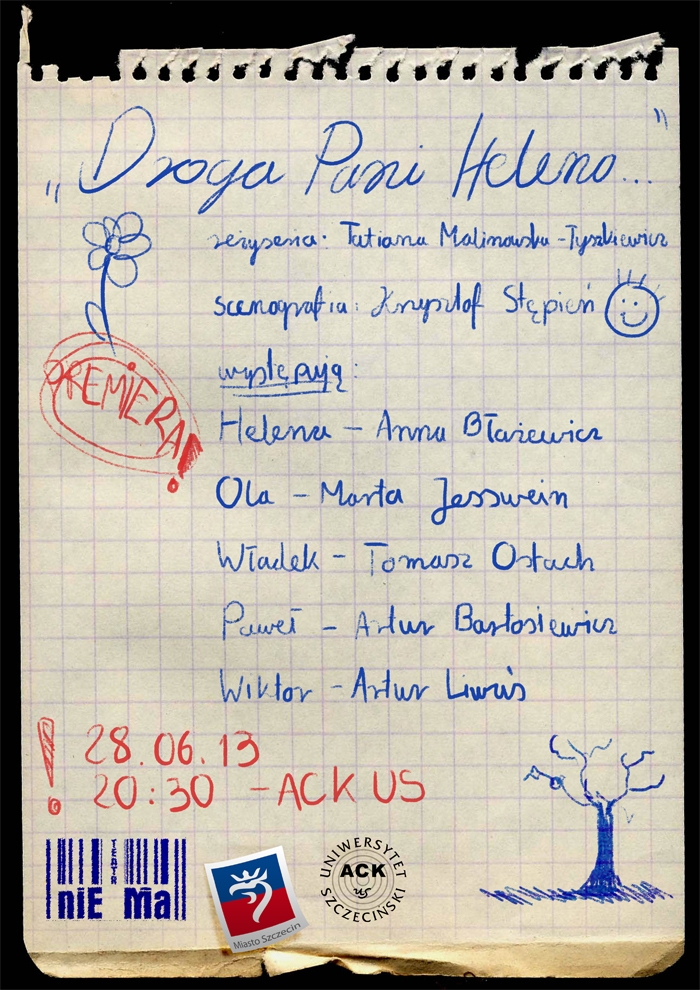 „Droga Pani Heleno..."
reżyseria: Tatiana Malinowska-Tyszkiewicz
scenografia: Krzysztof Stępień
występują:
PREMIERA!
Helena – Anna Błażewicz
Ola – Marta Jesswein
Władek – Tomasz Ostach
Paweł – Artur Bartosiewicz
Wiktor – Artur Liwuś
! 28.06.13
20:30 – ACK US
TEATR
niE Ma
Miasto Szczecin
UNIWERSYTET
ACK
US
SZCZECIŃSKI